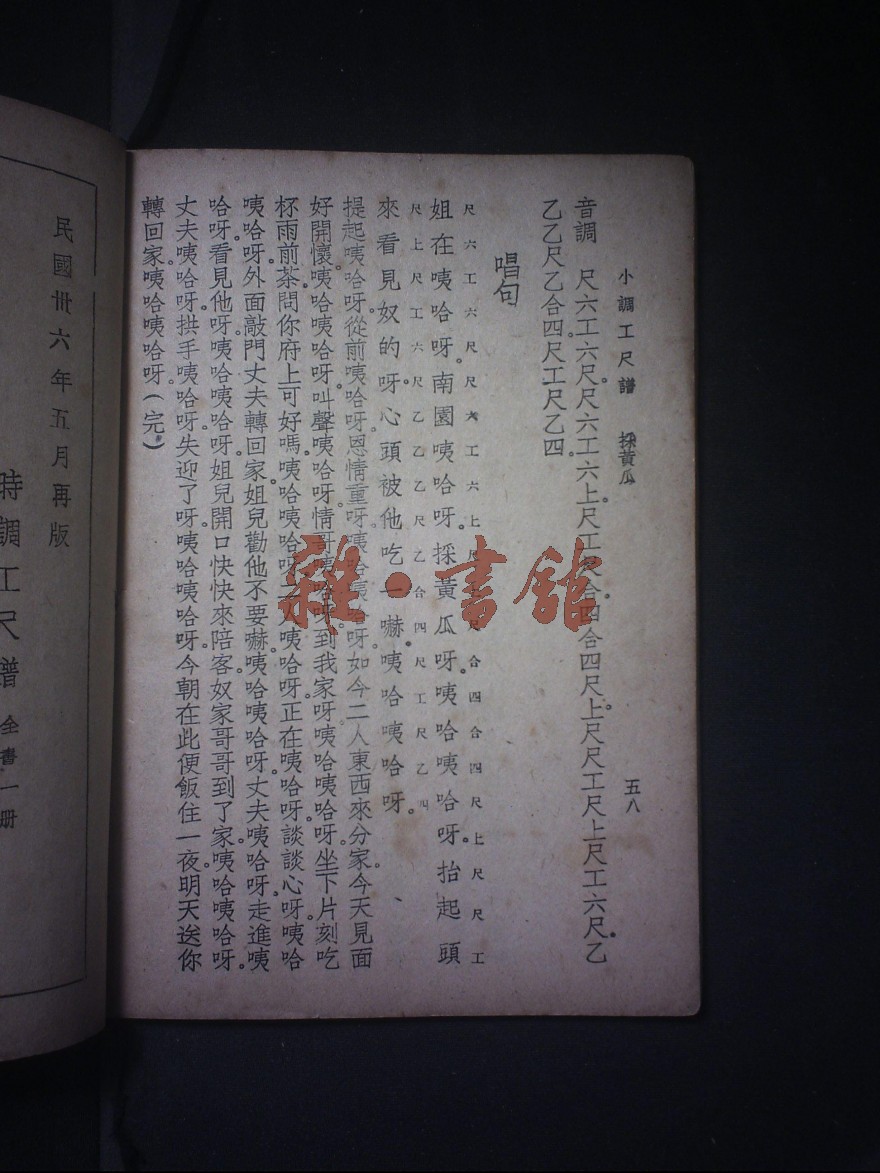 小調工尺譜 採黃瓜 五八
音調 尺六工六尺。尺六工六上。尺工尺合。四合四尺。上尺尺工尺上尺工六尺。乙
乙乙尺乙合四尺工尺乙四。
唱句
尺六工六尺尺六工六上尺 尺合四合四尺上尺尺工
姐在咦哈呀。南園咦哈呀。採黃瓜呀。咦哈咦哈呀。抬起頭
尺上尺工六尺乙乙乙尺乙合四尺工尺乙四
來看見奴的呀。心頭被他吃一嚇。咦哈咦哈呀。
提起咦哈呀。從前咦哈呀。恩情重呀。咦哈咦哈呀。如今二人東西來分家。今天見面
好開懷。咦哈咦哈呀。叫聲咦哈呀。情哥咦哈呀。到我家呀。咦哈咦哈呀。坐下片刻吃
杯雨前茶。問你府上可好嗎。咦哈咦哈呀。二人咦哈呀。正在咦哈呀。談談心呀。咦哈
咦哈呀。外面敲門丈夫轉回家。姐兒勸他不要嚇。咦哈咦哈呀。丈夫咦哈呀。走進咦
哈呀。看見他呀。咦哈咦哈呀。姐兒開口快快來陪客。奴家哥哥到了家。咦哈咦哈呀。
丈夫咦哈呀。拱手咦哈呀。失迎了呀。咦哈咦哈呀。今朝在此便飯住一夜。明天送你
轉回家。咦哈咦哈呀。(完)
民國卅六年五月再版
時調工尺譜 全書一册
雜·書館